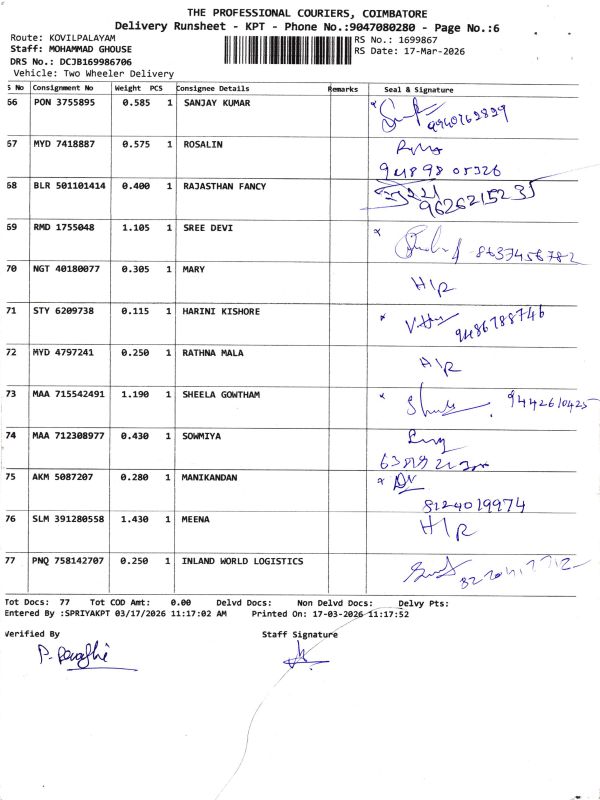 THE PROFESSIONAL COURIERS, COIMBATORE
Delivery Runsheet - KPT - Phone No.:9047080280 - Page No.:6
Route: KOVILPALAYAM
RS No.: 1699867
Staff: MOHAMMAD GHOUSE
RS Date: 17-Mar-2026
DRS No.: DCJB169986706
Vehicle: Two Wheeler Delivery
S No Consignment No Weight PCS Consignee Details Remarks Seal & Signature
66 PON 3755895 0.585 1 SANJAY KUMAR
67 MYD 7418887 0.575 1 ROSALIN
68 BLR 501101414 0.400 1 RAJASTHAN FANCY 9626215235
69 RMD 1755048 1.105 1 SREE DEVI 8637456782
70 NGT 40180077 0.305 1 MARY H/R
71 STY 6209738 0.115 1 HARINI KISHORE 9486788746
72 MYD 4797241 0.250 1 RATHNA MALA H/R
73 MAA 715542491 1.190 1 SHEELA GOWTHAM 9442610425
74 MAA 712308977 0.430 1 SOWMIYA
75 AKM 5087207 0.280 1 MANIKANDAN 8124019974
76 SLM 391280558 1.430 1 MEENA H/R
77 PNQ 758142707 0.250 1 INLAND WORLD LOGISTICS
Tot Docs: 77 Tot COD Amt: 0.00 Delvd Docs: Non Delvd Docs: Delvy Pts:
Entered By :SPRIYAKPT 03/17/2026 11:17:02 AM Printed On: 17-03-2026 11:17:52
Verified By Staff Signature